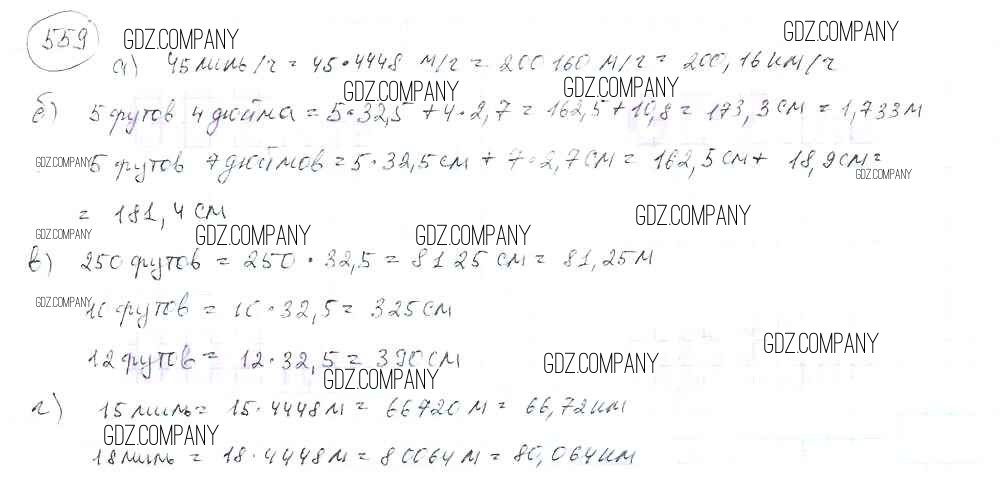 559 GDZ.COMPANY GDZ.COMPANY
а) 45 миль/ч = 45·4448 м/ч = 200 160 м/ч = 200,16 км/ч
GDZ.COMPANY GDZ.COMPANY
б) 5 футов 4 дюйма = 5·32,5 + 4·2,7 = 162,5 + 10,8 = 173,3 см = 1,733 м
GDZ.COMPANY 5 футов 7 дюймов = 5·32,5 см + 7·2,7 см = 162,5 см + 18,9 см =
GDZ.COMPANY
= 181,4 см GDZ.COMPANY
GDZ.COMPANY GDZ.COMPANY GDZ.COMPANY
в) 250 футов = 250 · 32,5 = 8125 см = 81,25 м
GDZ.COMPANY 10 футов = 10·32,5 = 325 см
GDZ.COMPANY
12 футов = 12·32,5 = 390 см GDZ.COMPANY
GDZ.COMPANY
г) 15 миль = 15·4448 м = 66720 м = 66,72 км
GDZ.COMPANY
18 миль = 18·4448 м = 80064 м = 80,064 км